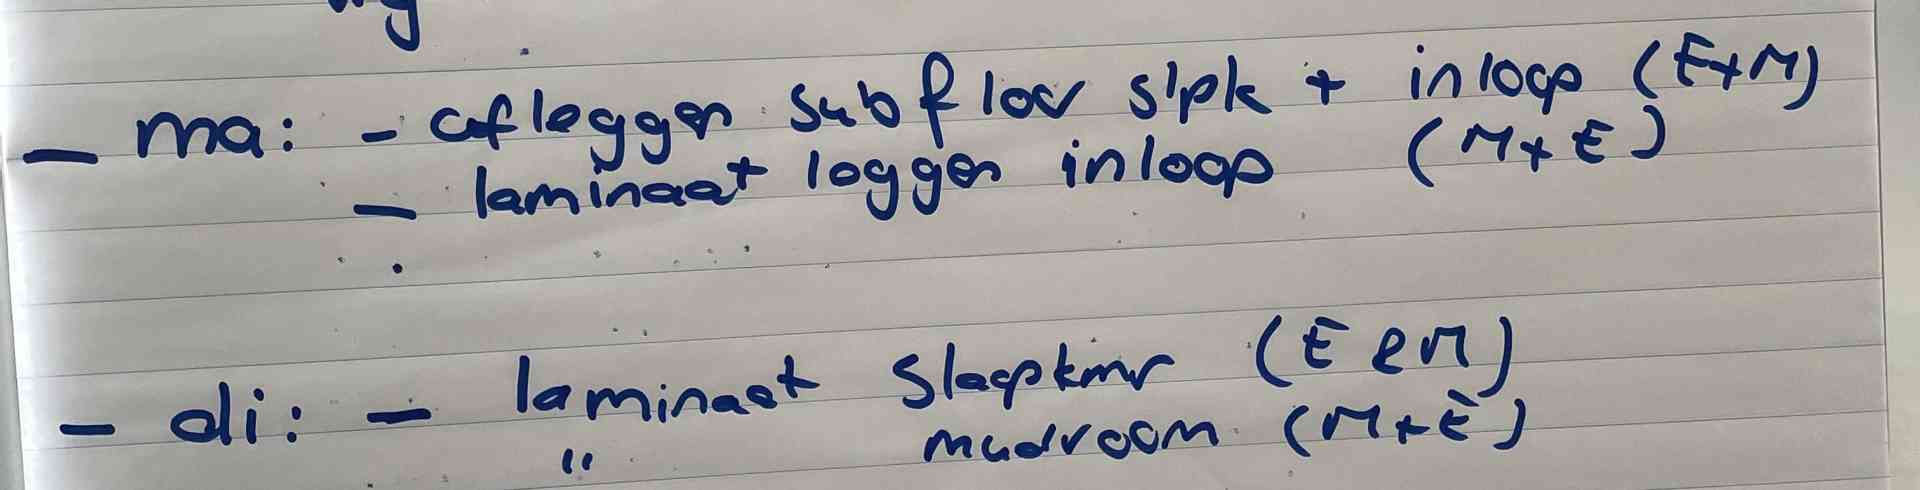 - ma: - afleggen subflow slpk + inloop (E+M)
- laminaat leggen inloop (M+E)
- di: - laminaat slaapkmr (E & M)
" mudroom (M+E)